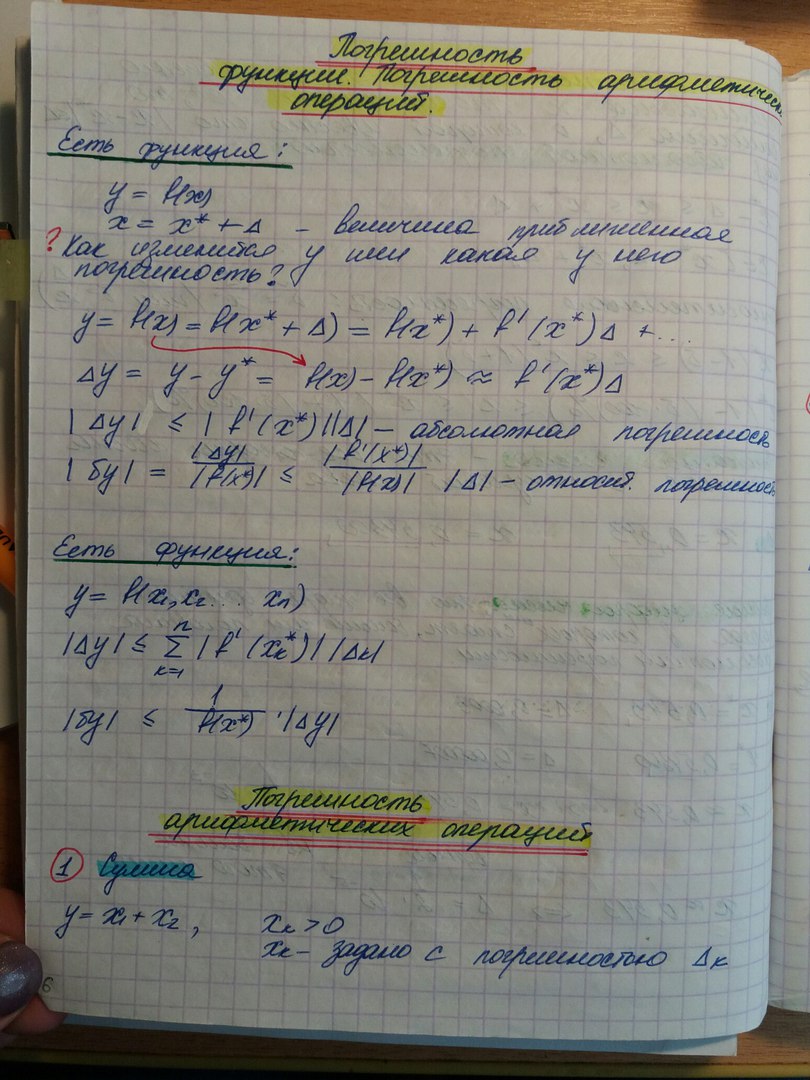 Погрешность
функции. Погрешность арифметическ
операций.
Есть функция:
y = f(x)
x = x* + Δ - величина приближенная
? Как изменится y или какая у него
погрешность?
y = f(x) = f(x* + Δ) = f(x*) + f'(x*)Δ + ...
Δy = y - y* = f(x) - f(x*) ≈ f'(x*)Δ
|Δy| ≤ |f'(x*)||Δ| - абсолютная погрешность
|δy| = |Δy|/|f(x*)| ≤ |f'(x*)|/|f(x)| |Δ| - относит. погрешность
Есть функция:
y = f(x₁, x₂ ... xₙ)
|Δy| ≤ Σₖ₌₁ⁿ |f'(xₖ*)| |Δₖ|
|δy| ≤ 1/f(x*) · |Δy|
Погрешность
арифметических операций
1 Сумма
y = x₁ + x₂, xₖ > 0
xₖ - задано с погрешностью Δₖ
6